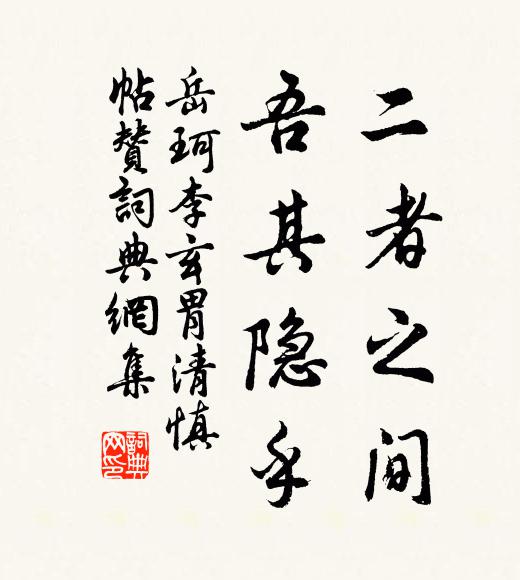 二者之间
吾其隐乎
岳珂李玄胃清慎
帖赞词典網集
詞典网印